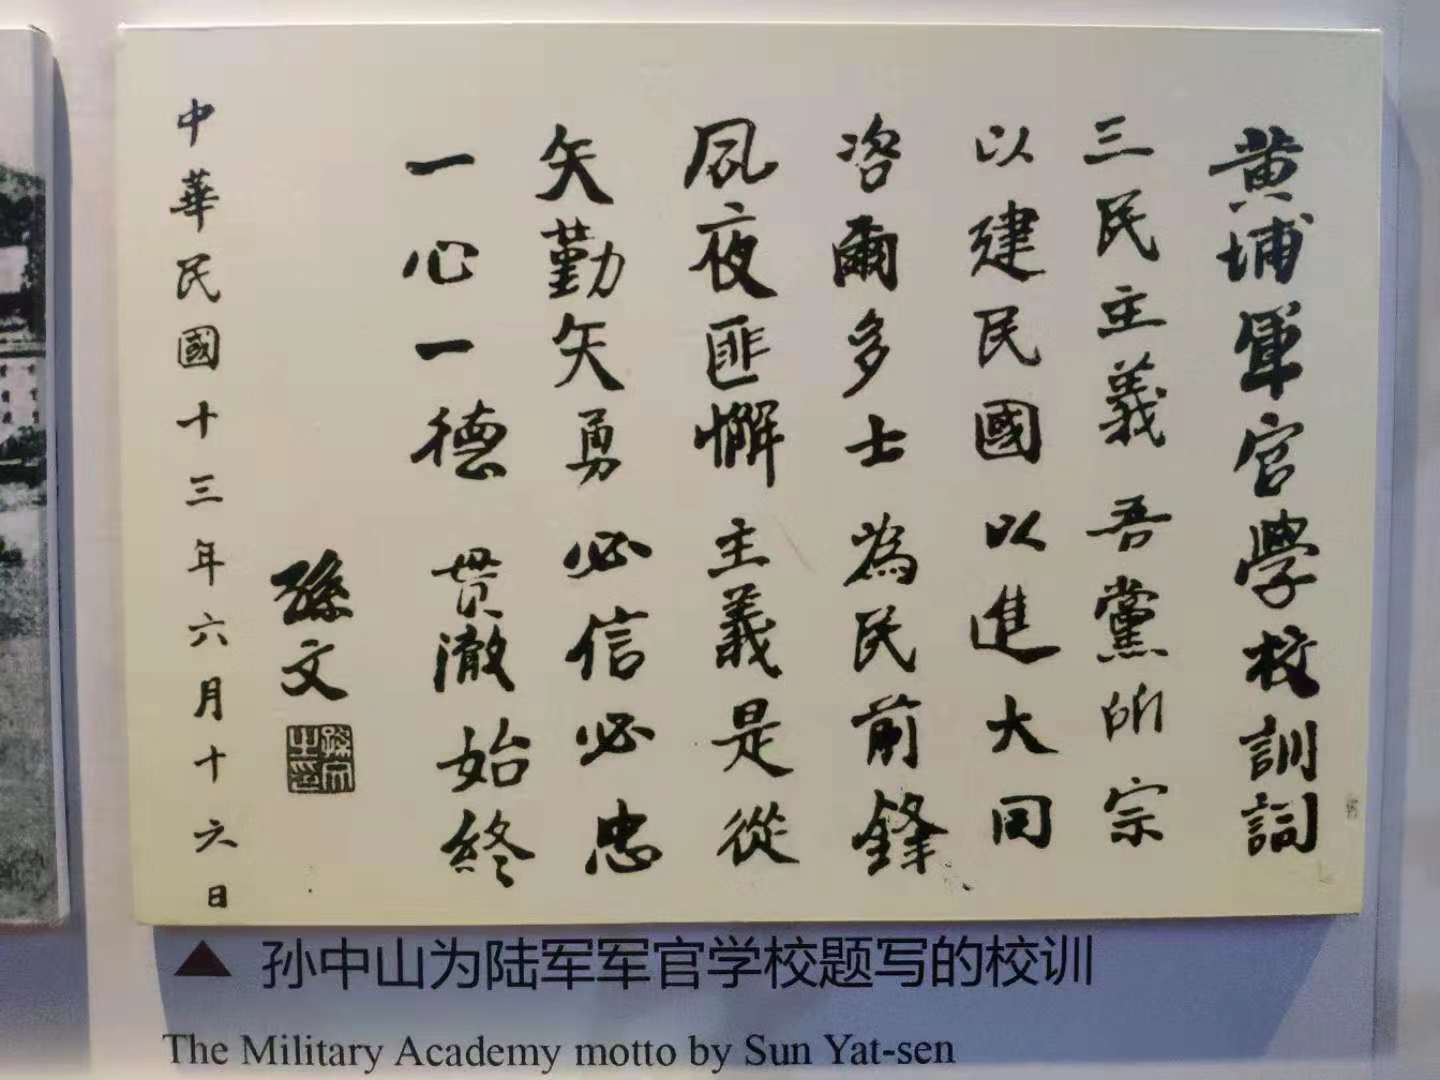 黃埔軍官學校訓詞
三民主義 吾黨所宗
以建民國 以進大同
咨爾多士 為民前鋒
夙夜匪懈 主義是從
矢勤矢勇 必信必忠
一心一德 貫澈始終
孫文
孫文之印
中華民國十三年六月十六日
孙中山为陆军军官学校题写的校训
The Military Academy motto by Sun Yat-sen